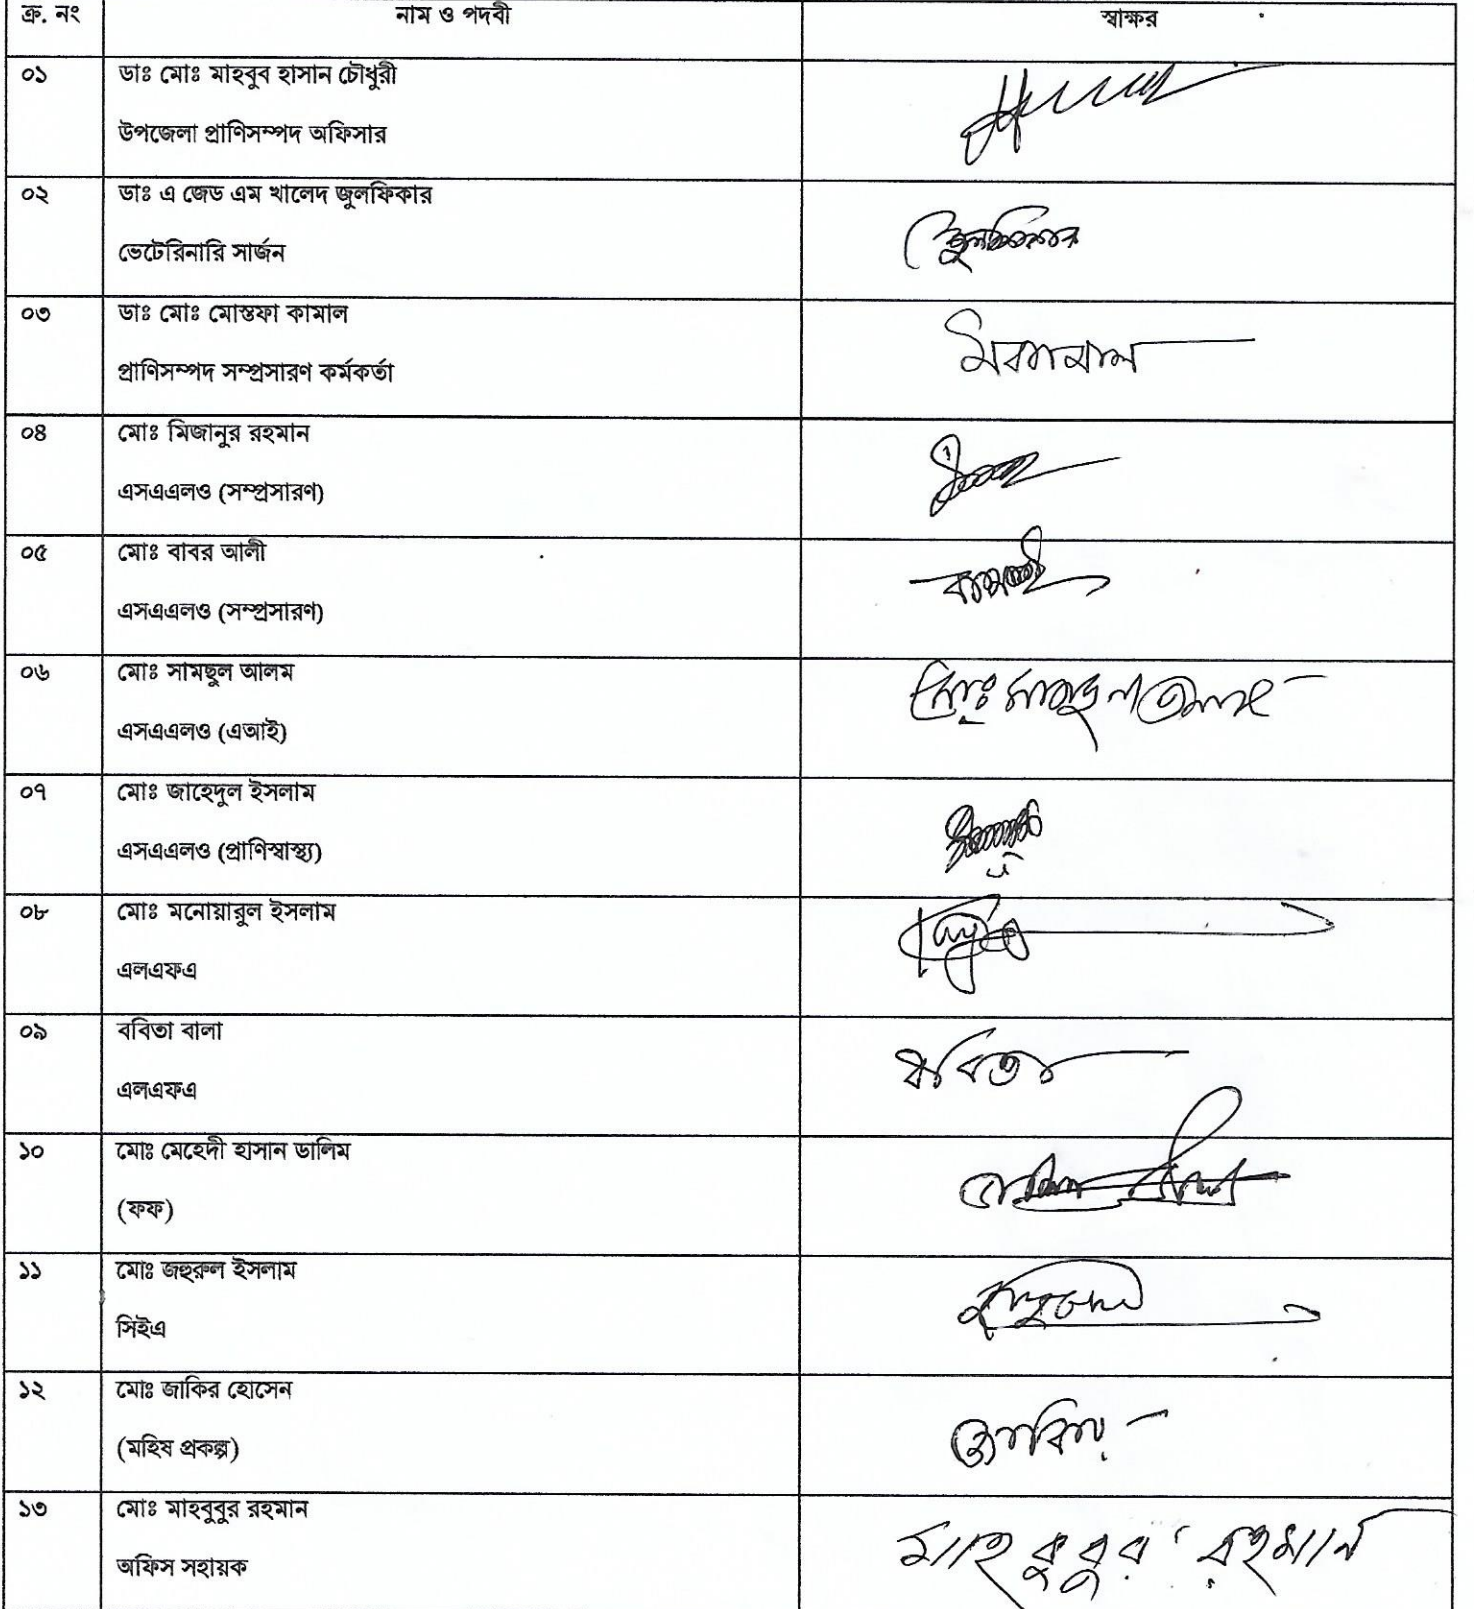 ক্র. নং নাম ও পদবী স্বাক্ষর
০১ ডাঃ মোঃ মাহবুব হাসান চৌধুরী
উপজেলা প্রাণিসম্পদ অফিসার
০২ ডাঃ এ জেড এম খালেদ জুলফিকার
ভেটেরিনারি সার্জন
জুলফিকার
০৩ ডাঃ মোঃ মোস্তফা কামাল
প্রাণিসম্পদ সম্প্রসারণ কর্মকর্তা
০৪ মোঃ মিজানুর রহমান
এসএএলও (সম্প্রসারণ)
০৫ মোঃ বাবর আলী
এসএএলও (সম্প্রসারণ)
০৬ মোঃ সামছুল আলম
মোঃ সামছুল আলম
এসএএলও (এআই)
০৭ মোঃ জাহেদুল ইসলাম
এসএএলও (প্রাণিস্বাস্থ্য)
০৮ মোঃ মনোয়ারুল ইসলাম
এলএফএ
০৯ ববিতা বালা
ববিতা
এলএফএ
১০ মোঃ মেহেদী হাসান ডালিম
(ফফ)
১১ মোঃ জহুরুল ইসলাম
সিইএ
১২ মোঃ জাকির হোসেন
জাকির
(মহিষ প্রকল্প)
১৩ মোঃ মাহবুবুর রহমান
মাহবুবুর রহমান
অফিস সহায়ক